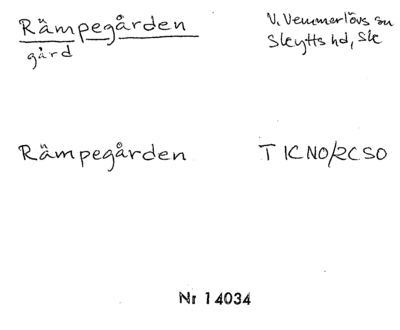 Rämpegården
gård
V. Vemmerlövs sn
Skytts hd, Sk
Rämpegården
T 1C NO/2C SO
Nr 14034